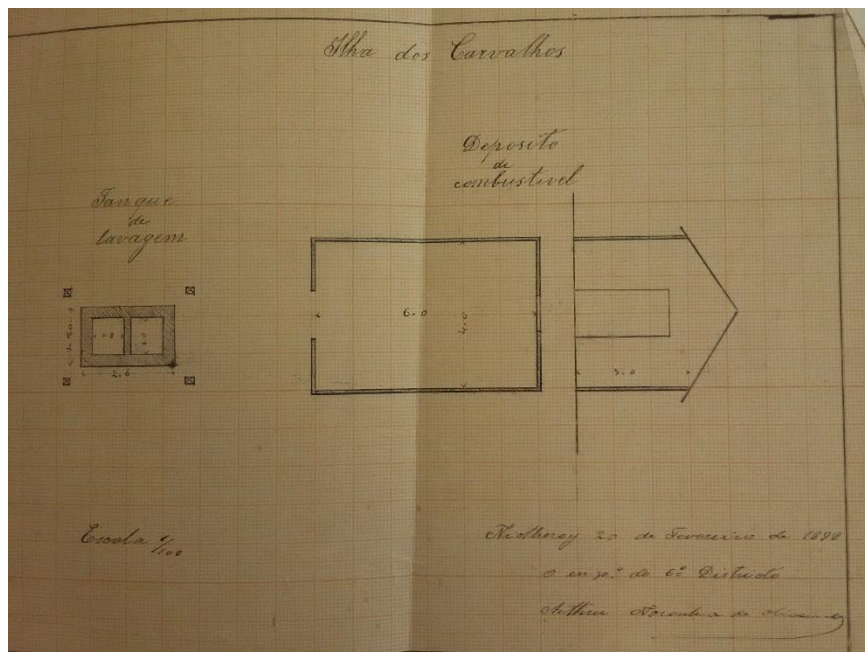 Ilha dos Carvalhos
Deposito
de
combustivel
Tanque
de
lavagem
6.0
4.0
3.0
2.6
Escala 1/100
Nictheroy 20 de Fevereiro de 1898
o engº do 6º Districto
Arthur de